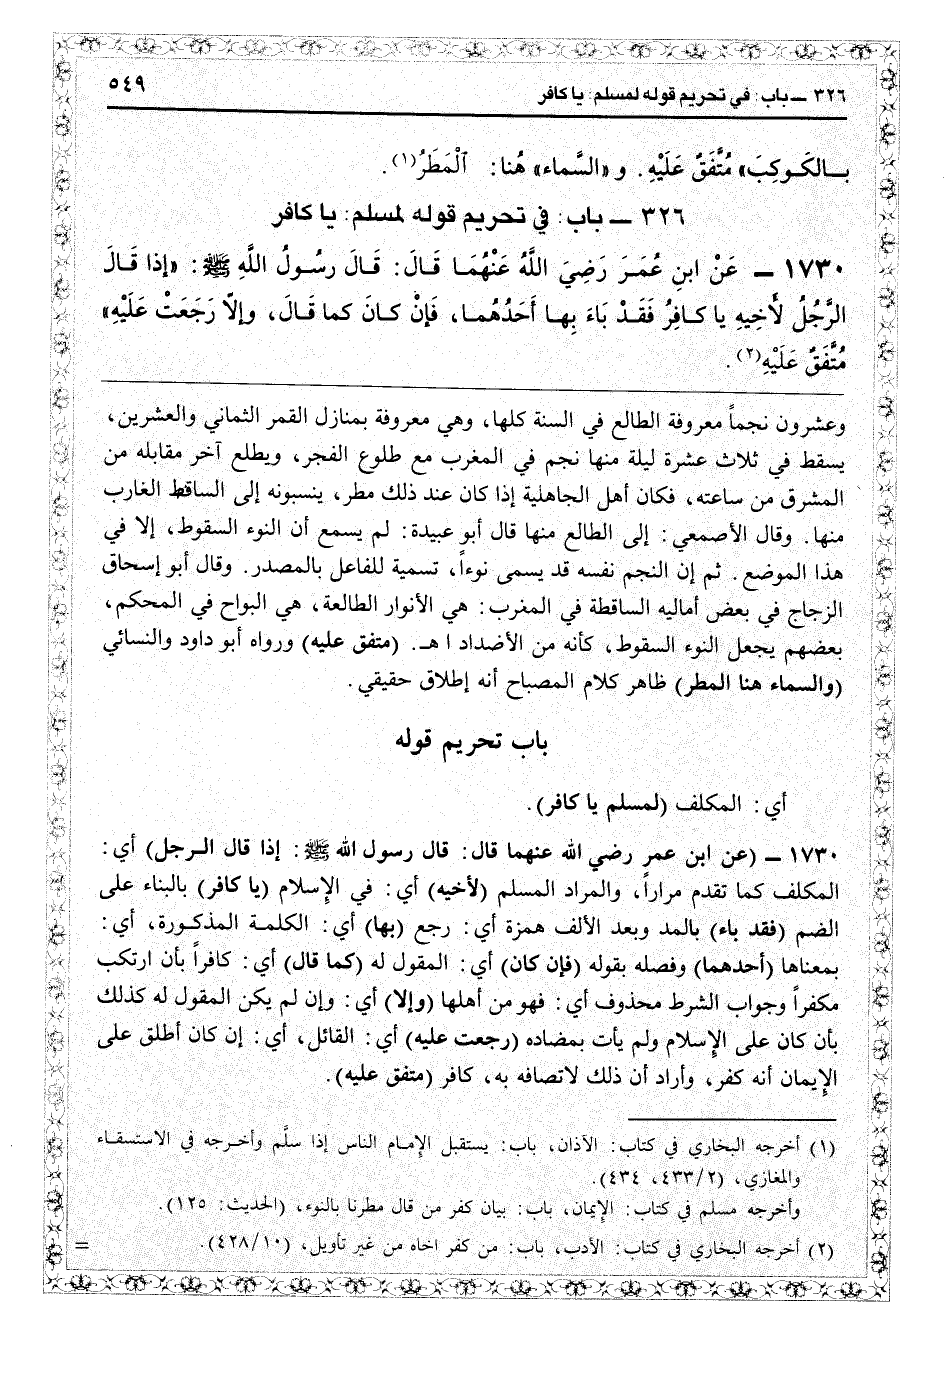 ٣٢٦ ــ باب: في تحريم قوله لمسلم: يا كافر ٥٤٩
بـالكَوكِبَ» مُتَّفَقٌ عَلَيْهِ. و «السَّماء» هُنا: ٱلْمَطَرُ(١).
٣٢٦ ــ باب: في تحريم قوله لمسلم: يا كافر
١٧٣٠ ــ عَنْ ابنِ عُمَرَ رَضِيَ اللَّهُ عَنْهُمَا قَالَ: قَالَ رسُولُ اللَّهِ ﷺ: «إذا قَالَ
الرَّجُلُ لأَخِيهِ يا كافِرُ فَقَدْ بَاءَ بِهـا أَحَدُهُما، فَإنْ كانَ كما قَالَ، وإلّا رَجَعَتْ عَلَيْهِ»
مُتَّفَقٌ عَلَيْهِ(٢).
وعشرون نجماً معروفة الطالع في السنة كلها، وهي معروفة بمنازل القمر الثماني والعشرين،
يسقط في ثلاث عشرة ليلة منها نجم في المغرب مع طلوع الفجر، ويطلع آخر مقابله من
المشرق من ساعته، فكان أهل الجاهلية إذا كان عند ذلك مطر، ينسبونه إلى الساقط الغارب
منها. وقال الأصمعي: إلى الطالع منها قال أبو عبيدة: لم يسمع أن النوء السقوط، إلا في
هذا الموضع. ثم إن النجم نفسه قد يسمى نوءاً، تسمية للفاعل بالمصدر. وقال أبو إسحاق
الزجاج في بعض أماليه الساقطة في المغرب: هي الأنوار الطالعة، هي البواح في المحكم،
بعضهم يجعل النوء السقوط، كأنه من الأضداد ا هـ. (متفق عليه) ورواه أبو داود والنسائي
(والسماء هنا المطر) ظاهر كلام المصباح أنه إطلاق حقيقي.
باب تحريم قوله
أي: المكلف (لمسلم يا كافر).
١٧٣٠ ــ (عن ابن عمر رضي الله عنهما قال: قال رسول الله ﷺ: إذا قال الـرجل) أي:
المكلف كما تقدم مراراً، والمراد المسلم (لأخيه) أي: في الإسلام (يا كافر) بالبناء على
الضم (فقد باء) بالمد وبعد الألف همزة أي: رجع (بها) أي: الكلمـة المذكـورة، أي:
بمعناها (أحدهما) وفصله بقوله (فإن كان) أي: المقول له (كما قال) أي: كافراً بأن ارتكب
مكفراً وجواب الشرط محذوف أي: فهو من أهلها (وإلا) أي: وإن لم يكن المقول له كذلك
بأن كان على الإسلام ولم يأت بمضاده (رجعت عليه) أي: القائل، أي: إن كان أطلق على
الإيمان أنه كفر، وأراد أن ذلك لاتصافه به، كافر (متفق عليه).
(١) أخرجه البخاري في كتاب: الأذان، باب: يستقبل الإمام الناس إذا سلَّم وأخـرجه في الاستسقـاء
والمغازي، (٤٣٣/٢، ٤٣٤).
وأخرجه مسلم في كتاب: الإيمان، باب: بيان كفر من قال مطرنا بالنوء، (الحديث: ١٢٥).
(٢) أخرجه البخاري في كتاب: الأدب، باب: من كفر اخاه من غير تأويل، (٤٢٨/١٠). =